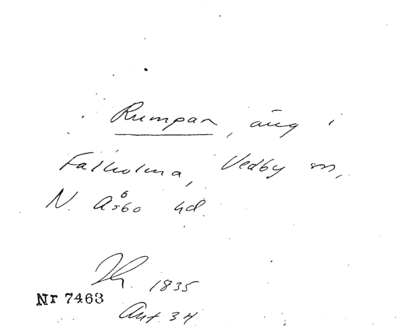 Rumpan, äng i
Falholma, Vedby sn,
N. Åsbo hd.
1835
Nr 7463
Ant 34